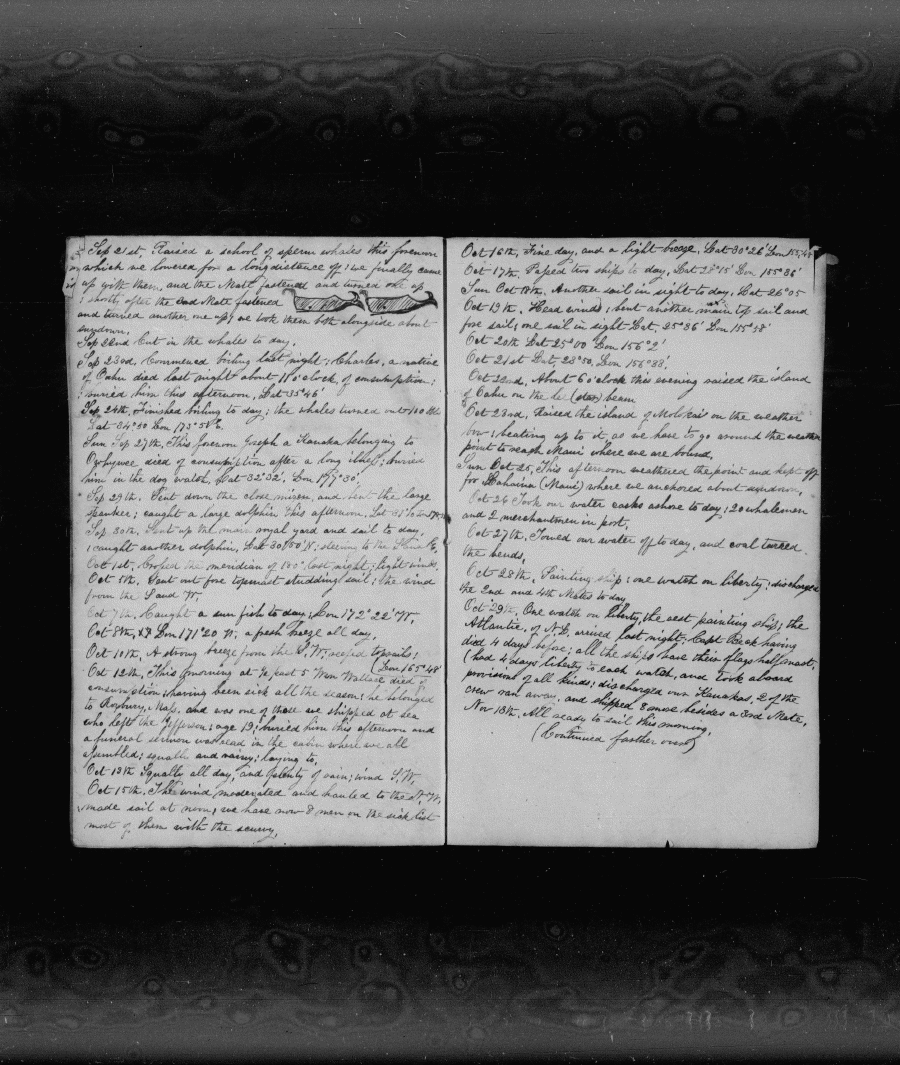 Sep 21st, Raised a school of sperm whales this forenoon
which we lowered for a long distance off; we finally came
up with them, and the Mate fastened and turned one up
; shortly after the 2nd Mate fastened
and turned another one up; we took them both alongside about
sundown,
Sep 22nd Cut in the whales to day,
Sep 23rd, Commenced boiling last night; Charles, a native
of Oahu died last night about 11 o'clock, of consumption;
; buried him this afternoon, Lat 35°46
Sep 24th, Finished boiling to day; the whales turned out 100 bbls
Lat 34°50 Lon 173°58' E,
Sun Sep 27th, This forenoon Joseph a Kanaka belonging to
Owhyhee died of consumption after a long illness; buried
him in the dog watch, Lat 32°32', Lon 177°30',
Sep 29th, Sent down the close mizen, and bent the large
spanker; caught a large dolphin this afternoon, Lat 31°
Sep 30th, Sent up the main royal yard and sail to day,
; caught another dolphin, Lat 30°50' N; steering to the S and E,
Oct 1st, Crossed the meridian of 180° last night; light winds,
Oct 5th, Sent out fore topmast studding sail; the wind
from the S and W,
Oct 7th, Caught a sun fish to day; Lon 172°22' W,
Oct 8th, Lon 171°20 W; a fresh breeze all day,
Oct 10th, A strong breeze from the S, W; reefed topsails;
(Lon 165°48'
Oct 12th, This morning at ½ past 5 Wm Wallace died of
consumption; having been sick all the season; he belonged
to Roxbury, Mass, and was one of those we shipped at sea
who left the Jefferson; age 19; buried him this afternoon and
a funeral sermon was read in the cabin where we all
assembled; squally and rainy; laying to,
Oct 13th Squally all day, and plenty of rain; wind S, W,
Oct 15th, The wind moderated and hauled to the N, W,
made sail at noon; we have now 8 men on the sick list
most of them with the scurvy,
Oct 16th, Fine day, and a light breeze, Lat 30°26' Lon 155°48'
Oct 17th, Passed two ships to day, Lat 28°15' Lon 155°36'
Sun Oct 18th, Another sail in sight to day, Lat 26°05
Oct 19th, Head winds; bent another main top sail and
fore sail; one sail in sight Lat, 25°36' Lon 155°58'
Oct 20th Lat 25°00' Lon 156°2'
Oct 21st Lat, 23°50, Lon 156°38',
Oct 22nd, About 6 o'clock this evening raised the island
of Oahu on the le (lee) beam
Oct 23rd, Raised the island of Molokai on the weather
bow; beating up to it, as we have to go around the weather
point to reach Maui where we are bound,
Sun Oct 25, This afternoon weathered the point and kept off
for Lahaina (Maui) where we anchored about sundown,
Oct 26 Took our water casks ashore to day; 20 whalemen
and 2 merchantmen in port,
Oct 27th, Towed our water off to day, and coal tarred
the bends,
Oct 28th, Painting ship; one watch on liberty; discharged
the 2nd and 4th Mates to day
Oct 29th, One watch on liberty, the rest painting ship; the
Atlantic, of N, L, arrived last night; Capt Beck having
died 4 days before; all the ships have their flags half mast,
(had 4 days liberty to each watch, and took aboard
provisions of all kinds; discharged our Kanakas, 2 of the
crew ran away, and shipped 8 more besides a 3rd Mate,
Nov 13th, All ready to sail this morning,
(Continued farther over)